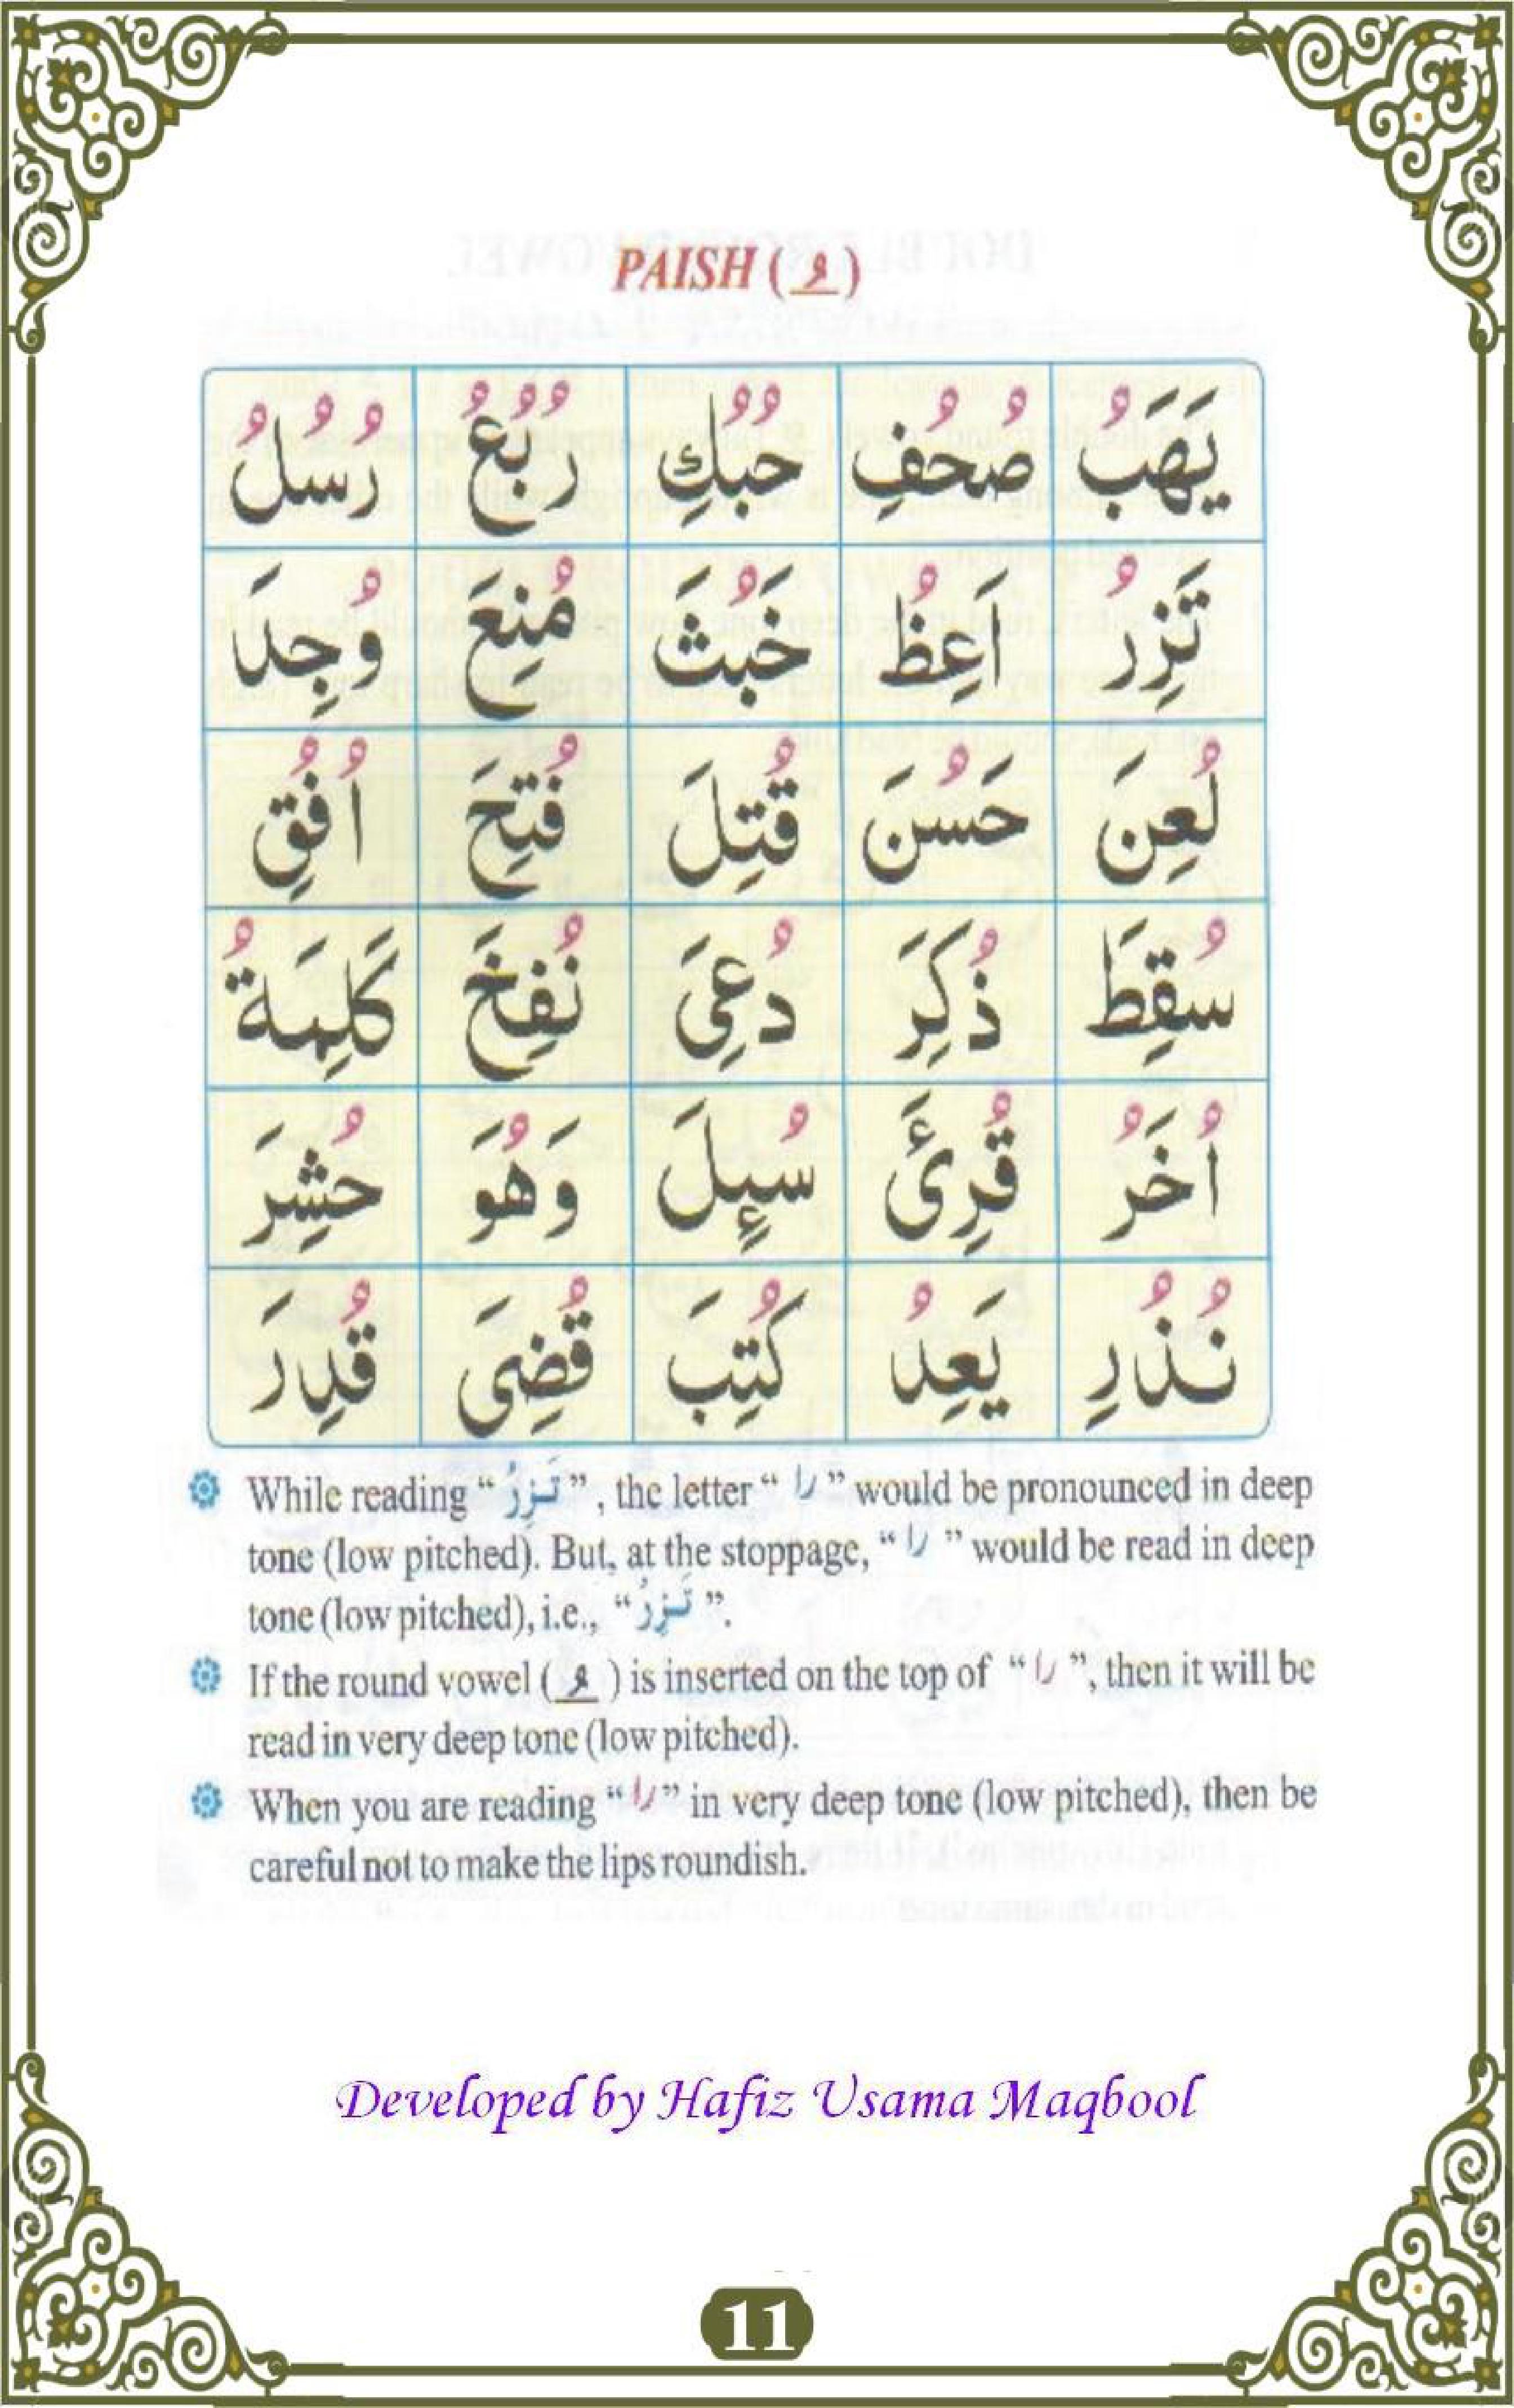 PAISH ( ُ )
يَهَبُ صُحُفِ حُبُكِ رُبُعُ رُسُلُ
تَزِرُ اَعِظُ خَبُثَ مُنِعَ وُجِدَ
لُعِنَ حَسُنَ قُتِلَ فُتِحَ اُفُقِ
سُقِطَ ذُكِرَ دُعِىَ نُفِخَ كَلِمَةُ
اُخَرُ قُرِئَ سُئِلَ وَهُوَ حُشِرَ
نُذُرِ يَعِدُ كُتِبَ قُضِىَ قُدِرَ
While reading “ تَزِرُ ”, the letter “ را ” would be pronounced in deep
tone (low pitched). But, at the stoppage, “ را ” would be read in deep
tone (low pitched), i.e., “ تَزِرُ ”.
If the round vowel ( ُ ) is inserted on the top of “ را ”, then it will be
read in very deep tone (low pitched).
When you are reading “ را ” in very deep tone (low pitched), then be
careful not to make the lips roundish.
Developed by Hafiz Usama Maqbool
11